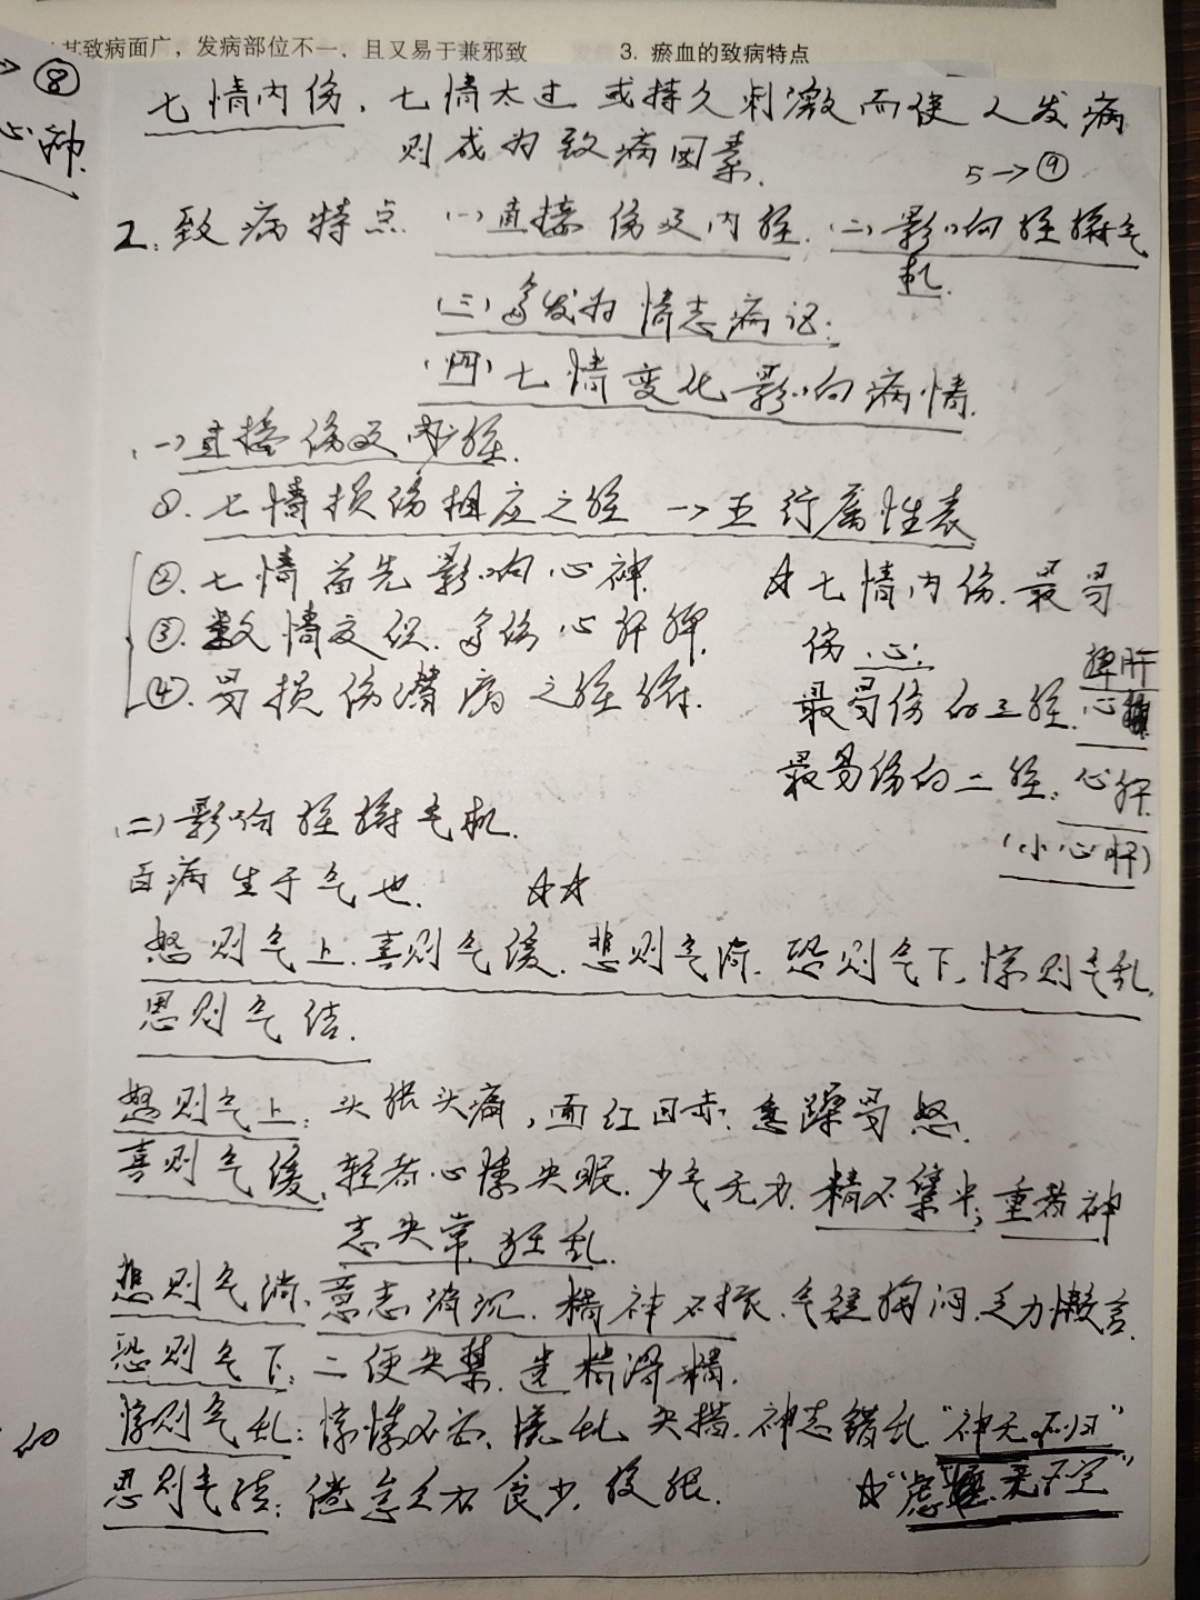 其致病面广，发病部位不一，且又易于兼邪致
3. 瘀血的致病特点
⑧
心神.
七情内伤，七情太过 或持久刺激而使人发病
则成为致病因素.
5→⑨
2. 致病特点 (一)直接伤及内脏. (二)影响脏腑气
机.
(三)多发为情志病证:
(四)七情变化影响病情.
(一)直接伤及内脏.
①. 七情损伤相应之脏 →五行属性表
②. 七情首先影响心神.
③. 数情交织. 多伤心肝脾.
④. 易损伤潜病之脏腑.
☆七情内伤. 最易
伤心.
最易伤的三脏. 脾肝
心
最易伤的二脏: 心肝.
(小心肝)
(二)影响脏腑气机.
百病生于气也. ☆☆
怒则气上. 喜则气缓. 悲则气消. 恐则气下. 惊则气乱.
思则气结.
怒则气上: 头胀头痛, 面红目赤. 急躁易怒.
喜则气缓, 轻者心悸失眠. 少气无力. 精不集中; 重者神
志失常. 狂乱.
悲则气消. 意志消沉. 精神不振. 气短胸闷. 乏力懒言.
恐则气下: 二便失禁. 遗精滑精.
惊则气乱: 惊悸不安、慌乱失措. 神志错乱 "神无所归"
的
思则气结: 倦怠乏力 食少. 腹胀. ☆"虑无所定"